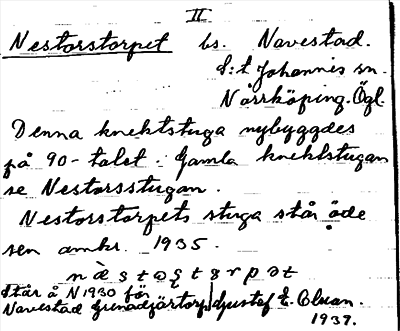 II
Nestorstorpet bs. Navestad.
S:t Johannis sn.
Norrköping. Ögl.
Denna knektstuga nybyggdes
på 90-talet. Gamla knektstugan
se Nestorsstugan.
Nestorstorpets stuga står öde
sen omkr. 1935.
Står å N 1930 för
Navestad Grenadjärtorp Gustaf E. Olson.
1937.